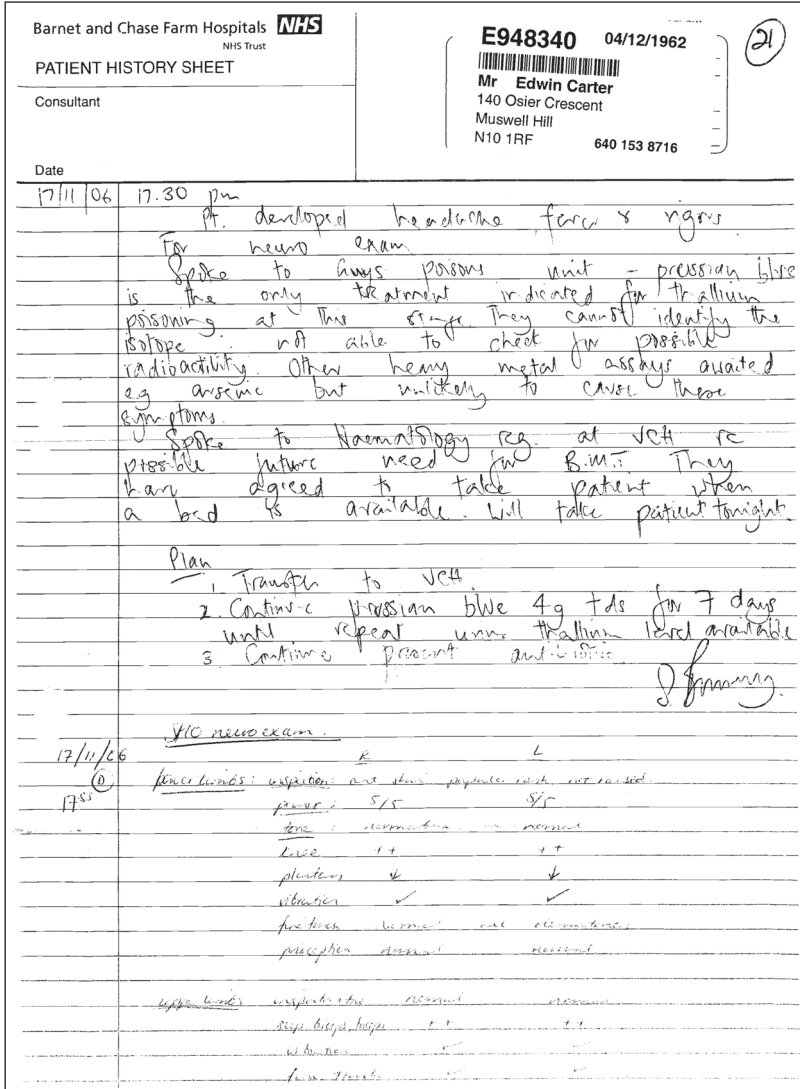 Barnet and Chase Farm Hospitals NHS
NHS Trust
PATIENT HISTORY SHEET
Consultant
Date
E948340 04/12/1962
Mr Edwin Carter
140 Osier Crescent
Muswell Hill
N10 1RF 640 153 8716
21
17/11/06 17.30 pm
Pt. developed headache fever & rigors
For neuro exam
Spoke to Guys poisons unit - prussian blue
is the only treatment indicated for thallium
poisoning at this stage. They cannot identify the
isotope not able to check for possible
radioactivity. Other heavy metal assays awaited
eg arsenic but unlikely to cause these
symptoms.
Spoke to Haematology reg. at UCH re
possible future need for B.M.T. They
have agreed to take patient when
a bed is available. Will take patient tonight.
Plan
1. Transfer to UCH
2. Continue prussian blue 4g tds for 7 days
until repeat urine thallium level available
3 Continue present antibiotics
neuro exam.
17/11/06
R L
17 55
lower limbs: inspection: rash, not raised.
power: 5/5 5/5
tone: normal
knee ++ ++
plantars ↓ ↓
vibration ✓ ✓
fine touch normal
normal normal
upper limbs normal normal
++ ++